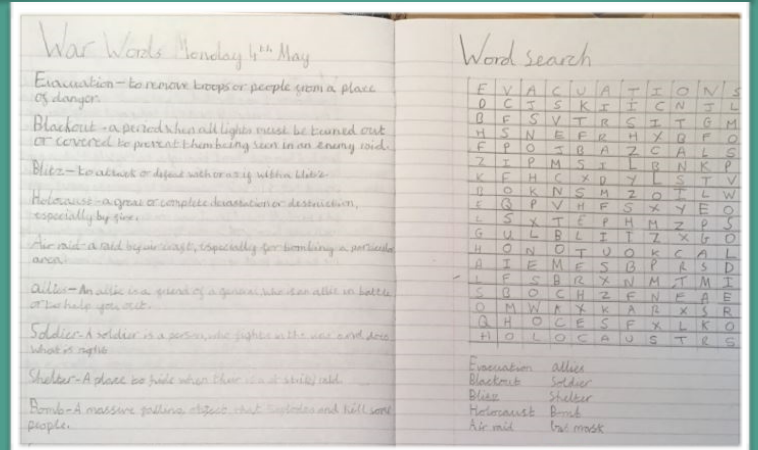 War Words Monday 4th May
Evacuation - to remove troops or people from a place
of danger.
Blackout - a period when all lights must be turned out
or covered to prevent them being seen in an enemy raid.
Blitz - to attack or defeat with or as if within blitz.
Holocaust - a great or complete devastation or destruction,
especially by fire.
Air raid - a raid by aircraft, especially for bombing a particular
area.
allies - An allie is a friend of a general, who is an allie in battle
or to help you out.
Soldier - A soldier is a person, who fights in the war and does
what is right.
Shelter - A place to hide when their is a raid.
Bomb - A massive falling object, that explodes and kill some
people.
Word search
E V A C U A T I O N S
D C J S K I I C N J L
B F S V T R S I T G M
H S N E F R H X B F O
F P O J B A Z C A L S
Z I P M S I L B N K P
K F H C X D Y L S T V
B O K N S M Z O I L W
E Q P V H F S X Y E O
L S X T E P H M Z P S
G U L B L I T Z X G O
H O N O T U O K C A L
A I E M E S B P R S D
L F S B R X N M T M I
S B O C H Z F N F A E
O M W A X K A R X S R
Q H O C E S F X L K O
H O L O C A U S T R S
Evacuation allies
Blackout Soldier
Blitz Shelter
Holocaust Bomb
Air raid Gas mask